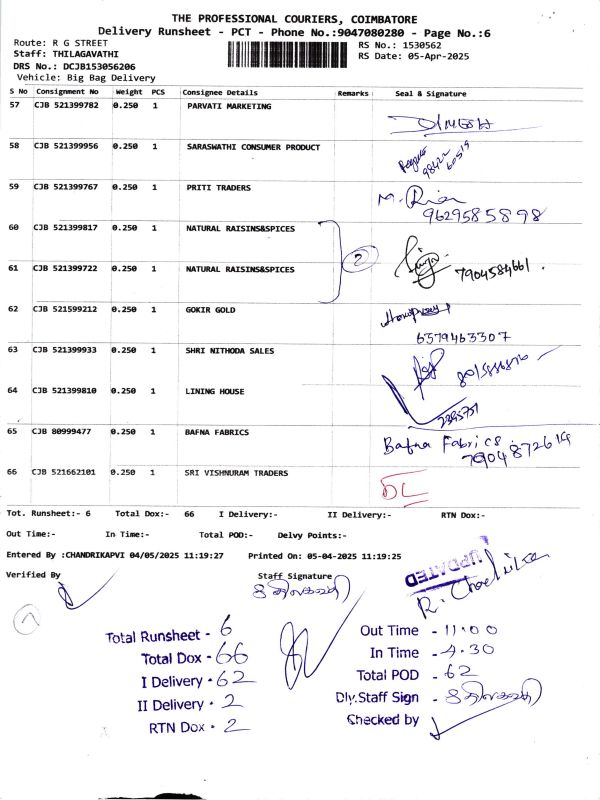 THE PROFESSIONAL COURIERS, COIMBATORE
Delivery Runsheet - PCT - Phone No.:9047080280 - Page No.:6
Route: R G STREET
RS No.: 1530562
Staff: THILAGAVATHI
RS Date: 05-Apr-2025
DRS No.: DCJB153056206
Vehicle: Big Bag Delivery
S No Consignment No Weight PCS Consignee Details Remarks Seal & Signature
57 CJB 521399782 0.250 1 PARVATI MARKETING
DINESH
58 CJB 521399956 0.250 1 SARASWATHI CONSUMER PRODUCT
98422 60519
59 CJB 521399767 0.250 1 PRITI TRADERS
9629585898
60 CJB 521399817 0.250 1 NATURAL RAISINS&SPICES
2
61 CJB 521399722 0.250 1 NATURAL RAISINS&SPICES
7904584661.
62 CJB 521599212 0.250 1 GOKIR GOLD
6379463307
63 CJB 521399933 0.250 1 SHRI NITHODA SALES
64 CJB 521399810 0.250 1 LINING HOUSE
2395751
65 CJB 80999477 0.250 1 BAFNA FABRICS
Bafna Fabrics.
7904872619
66 CJB 521662101 0.250 1 SRI VISHNURAM TRADERS
DL
Tot. Runsheet:- 6 Total Dox:- 66 I Delivery:- II Delivery:- RTN Dox:-
Out Time:- In Time:- Total POD:- Delvy Points:-
Entered By :CHANDRIKAPVI 04/05/2025 11:19:27 Printed On: 05-04-2025 11:19:25
Verified By Staff Signature
UPDATED
Total Runsheet - 6
Total Dox - 66
I Delivery - 62
II Delivery - 2
RTN Dox - 2
Out Time - 11:00
In Time - 4.30
Total POD - 62
Dly.Staff Sign -
Checked by